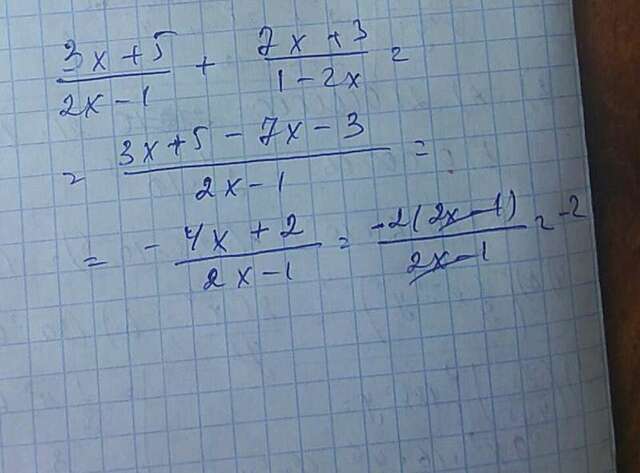 (3x+5)/(2x-1) + (7x+3)/(1-2x) =
= (3x+5-7x-3)/(2x-1) =
= -(4x+2)/(2x-1) = (-2(2x-1))/(2x-1) = -2